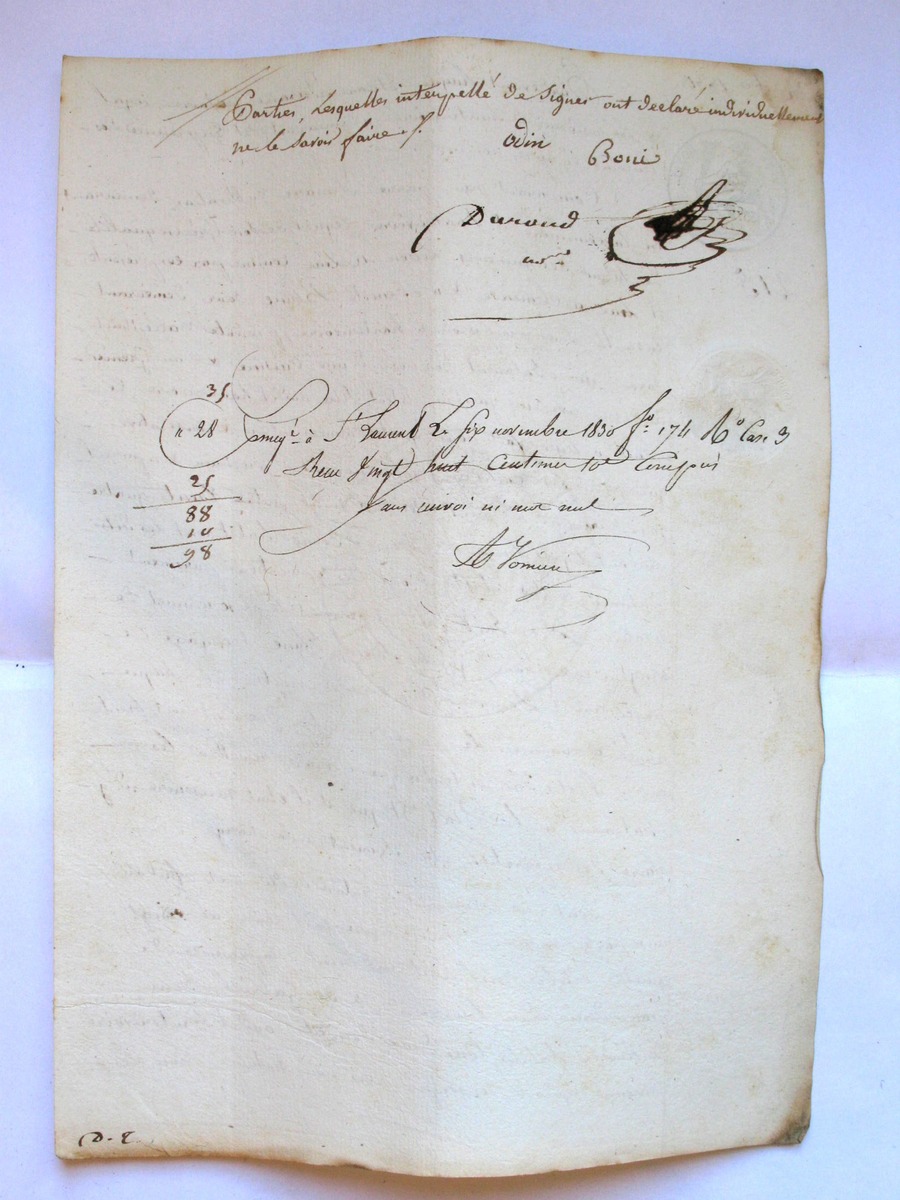 Parties, Lesquelles interpellé de Signer ont declaré individuellement
ne le Savoir faire ./.
odin
Boni
Durand
nore
35
" 28
Enregt. à St Laurent Le Six novembre 1830 fo. 174 Ro Case 3
Recu Vingt huit Centimes
25
Sans renvoi ni mot nul
88
10
98
D - E